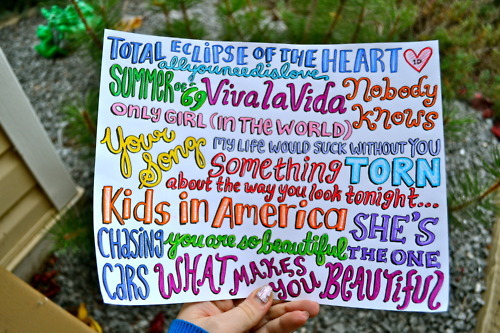 TOTAL ECLIPSE OF THE HEART 1D
allyouneedislove
SUMMER OF '69 Viva la Vida Nobody Knows
ONLY GIRL (IN THE WORLD)
Your Song MY LIFE WOULD SUCK WITHOUT YOU
Something TORN
about the way you look tonight...
Kids in America SHE'S THE ONE
CHASING CARS you are so beautiful
WHAT MAKES YOU BEAUTIFUL